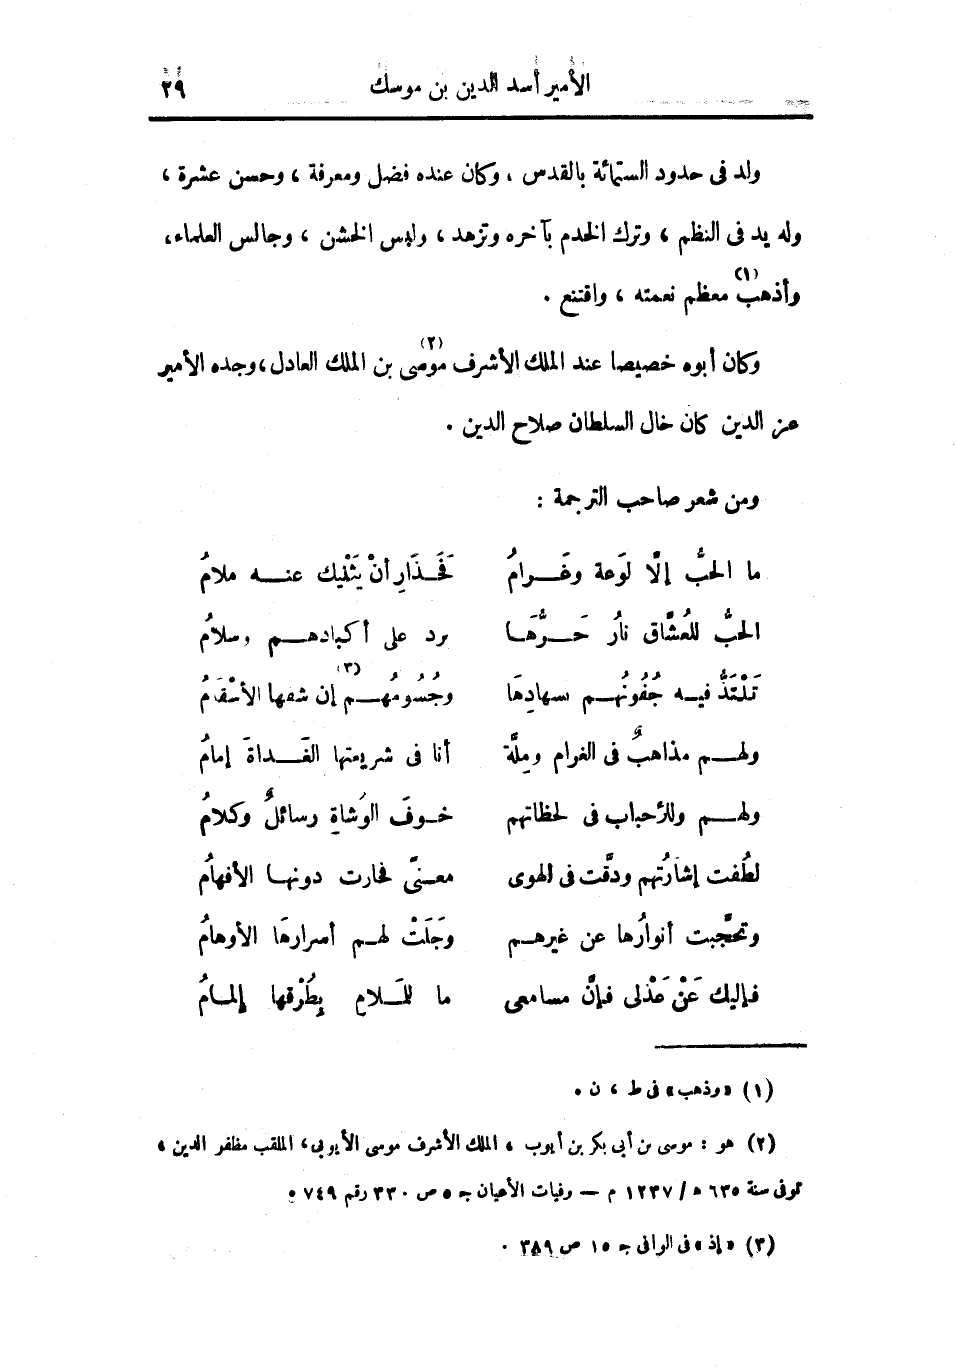 الأمير أسد الدين بن موسك ٢٩
ولد فى حدود الستمائة بالقدس ، وكان عنده فضل ومعرفة ، وحسن عشرة ،
وله يد فى النظم ، وترك الخدم بآخره وتزهد ، ولبس الخشن ، وجالس العلماء،
وأذهب(١) معظم نعمته ، واقتنع .
وكان أبوه خصيصا عند الملك الأشرف موسى(٢) بن الملك العادل ، وجده الأمير
عز الدين كان خال السلطان صلاح الدين .
ومن شعر صاحب الترجمة :
ما الحبُّ إلّا لوَعة وغَـرامُ فَحَـذَارِ أنْ يَثْنيك عنـه ملامُ
الحبُّ للعُشَّاق نارُ حَـرُّهَـا برد على أكبادهـم وسلامُ
تَلْتَذُّ فيـه جُفُونُهـم بسهادِهَا وجُسُومُهـم(٣) إن شفها الأسْقَامُ
ولهـم مذاهبٌ فى الغرام ومِلَّة أنا فى شريعتها الغَـداةَ إمامُ
ولهـم وللأحباب فى لحظاتهم خـوفَ الوُشاةِ رسائلٌ وكلامُ
لطُفت إشارَتُهم ودقَّت فى الهوى معـنىً فحارت دونهـا الأفهامُ
وتحجَّبت أنوارُها عن غيرهـم وَجَلَتْ لهـم أسرارهَا الأوهامُ
فـإليك عَنْ عَذْلى فـإنَّ مسامعى ما للمـلامِ بِطُرْقها إلمـامُ
(١) «وذهب» فى ط ، ن .
(٢) هو : موسى بن أبى بكر بن أيوب ، الملك الأشرف موسى الأيوبى ، الملقب مظفر الدين ،
توفى سنة ٦٣٥ ه / ١٢٣٧ م – وفيات الأعيان ج ٥ ص ٣٣٠ رقم ٧٤٩ .
(٣) «إذ» فى الوافى ج ١٥ ص ٣٨٩ .